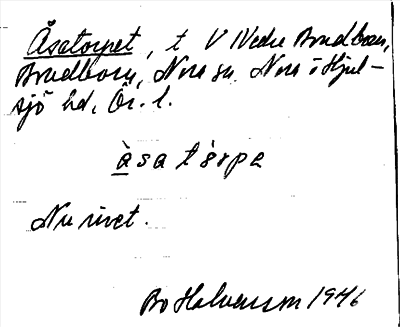 Åsatorpet, t V Nedre Bredboru,
Bredboru, Nora sn. Nora o Hjul-
sjö hd, Ör. l.
àsa tɔ̀rpe
Nu rivet.
Bo Halvarsson 1946